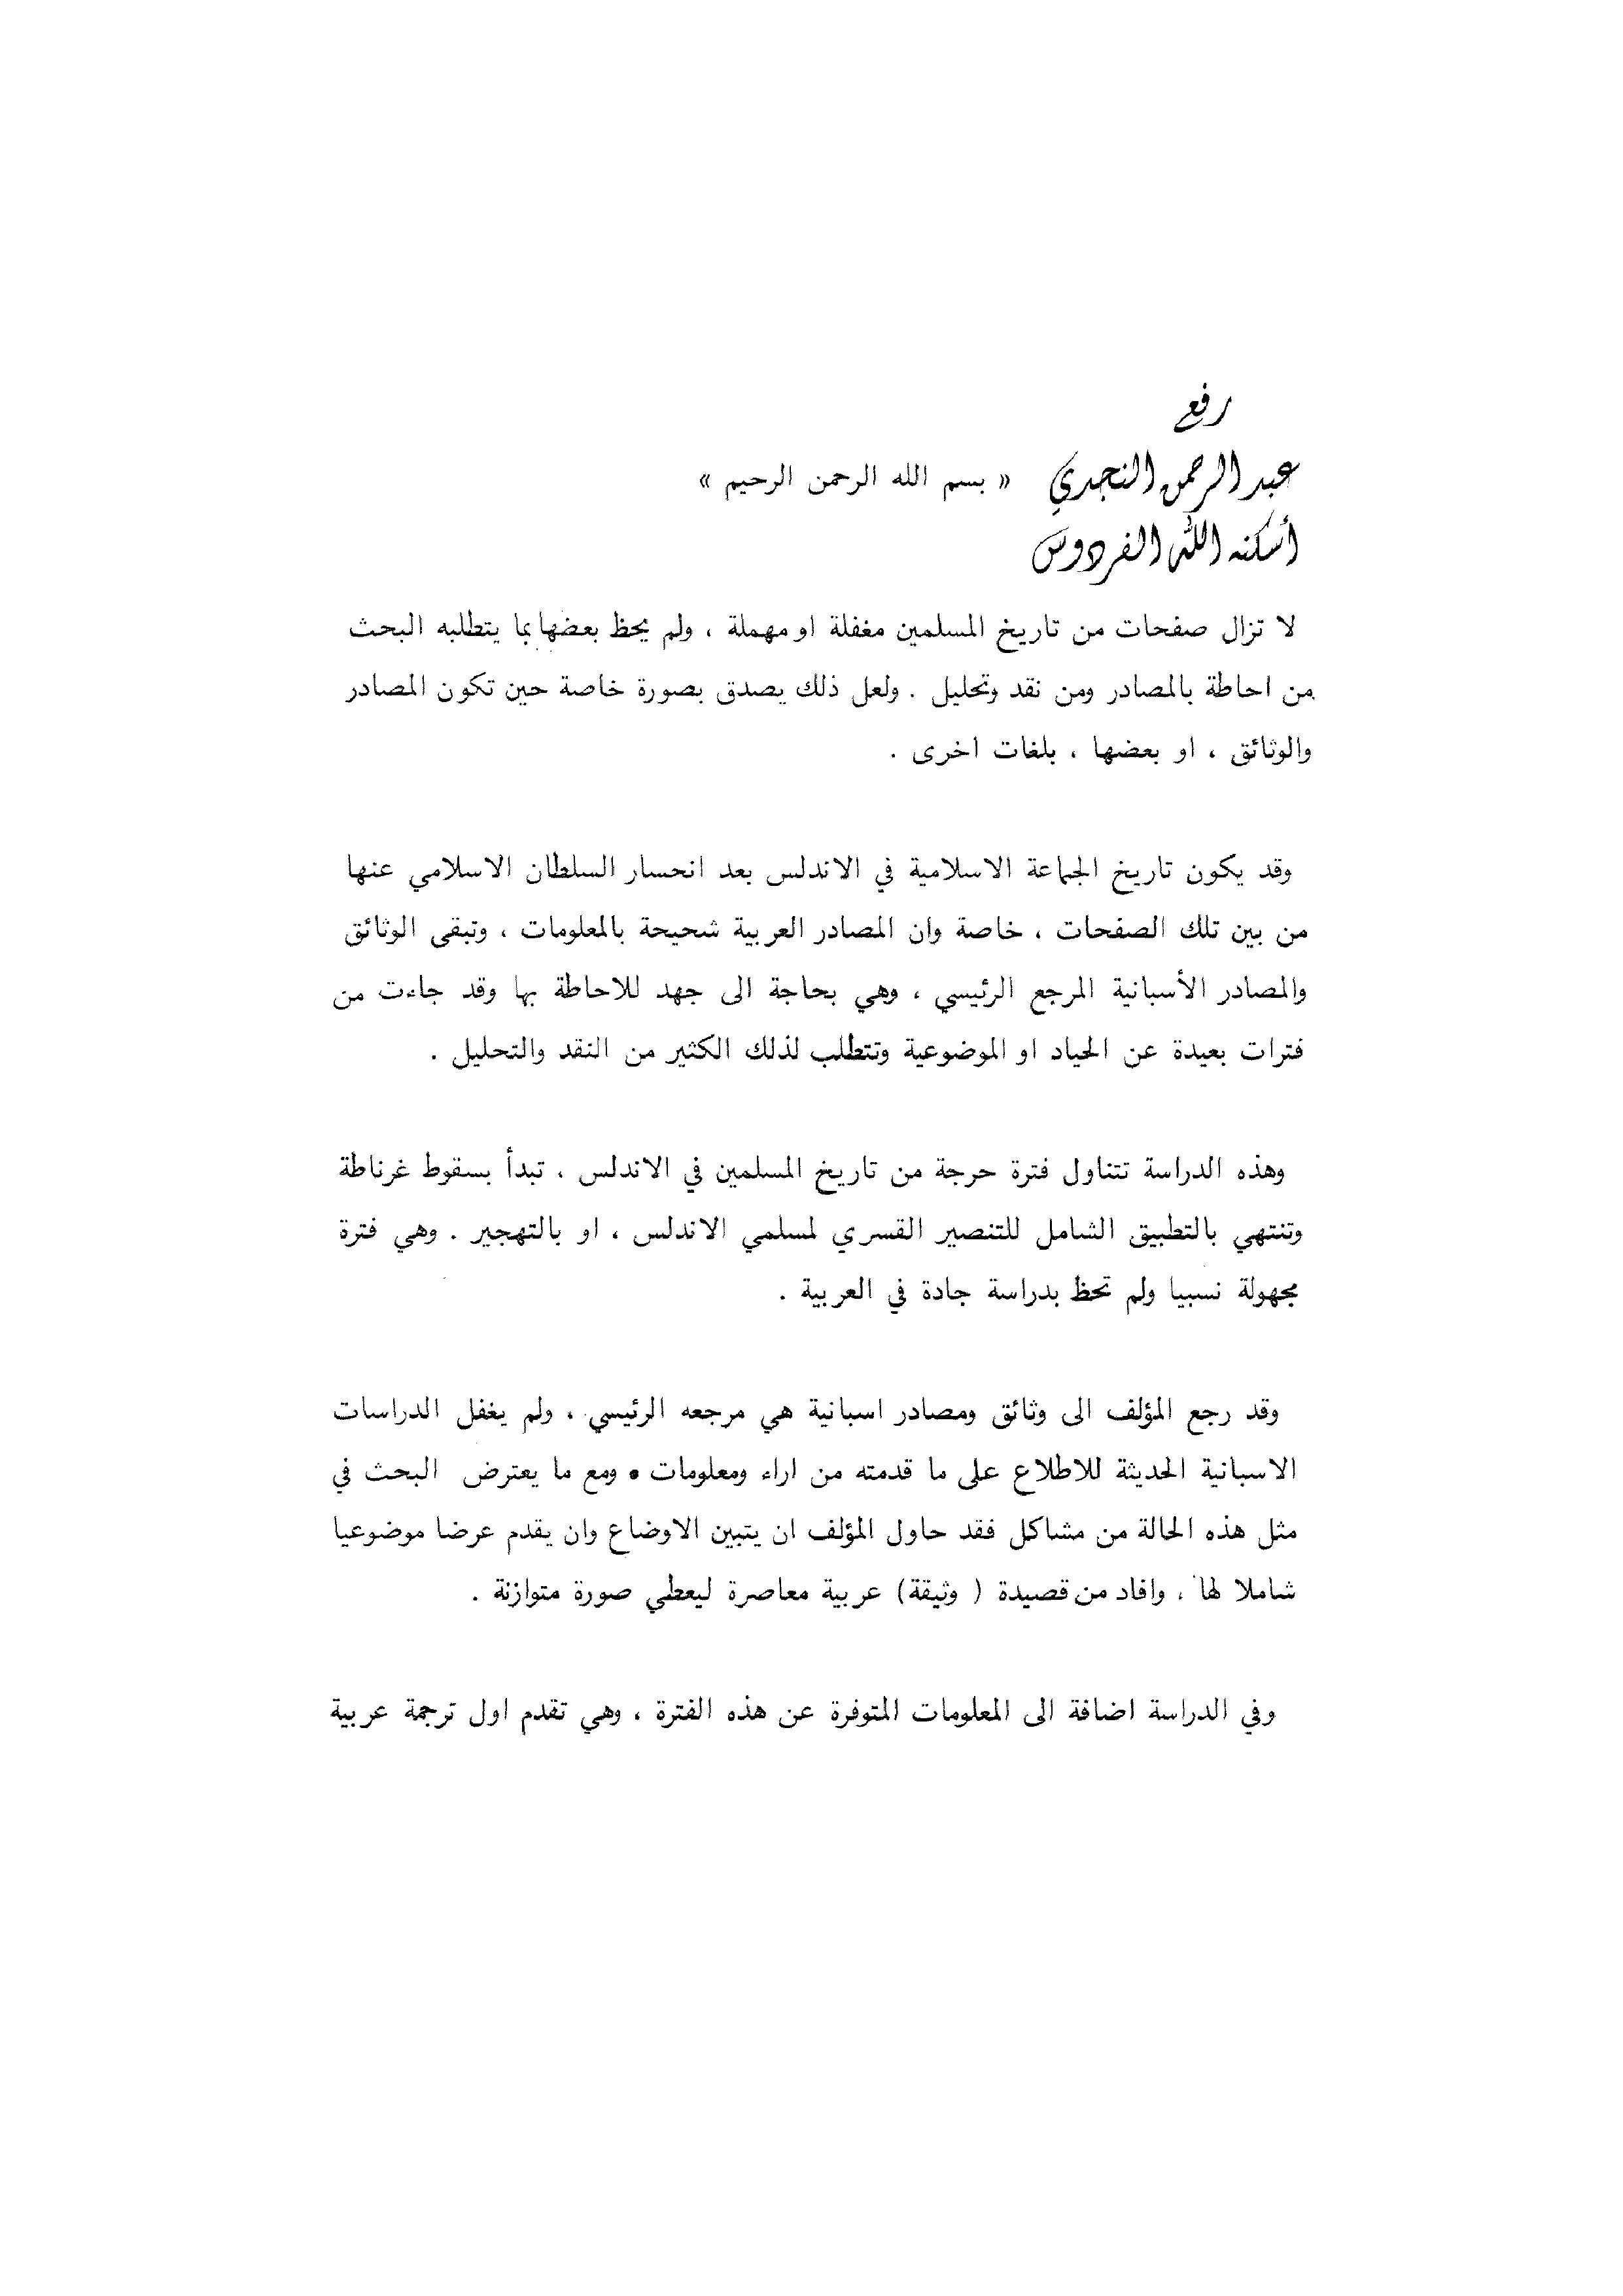 رفع
عبد الرحمن النجدي « بسم الله الرحمن الرحيم »
أسكنه الله الفردوس
لا تزال صفحات من تاريخ المسلمين مغفلة او مهملة ، ولم يحظ بعضها بما يتطلبه البحث
من احاطة بالمصادر ومن نقد وتحليل . ولعل ذلك يصدق بصورة خاصة حين تكون المصادر
والوثائق ، او بعضها ، بلغات اخرى .
وقد يكون تاريخ الجماعة الاسلامية في الاندلس بعد انحسار السلطان الاسلامي عنها
من بين تلك الصفحات ، خاصة وان المصادر العربية شحيحة بالمعلومات ، وتبقى الوثائق
والمصادر الأسبانية المرجع الرئيسي ، وهي بحاجة الى جهد للاحاطة بها وقد جاءت من
فترات بعيدة عن الحياد او الموضوعية وتتطلب لذلك الكثير من النقد والتحليل .
وهذه الدراسة تتناول فترة حرجة من تاريخ المسلمين في الاندلس ، تبدأ بسقوط غرناطة
وتنتهي بالتطبيق الشامل للتنصير القسري لمسلمي الاندلس ، او بالتهجير . وهي فترة
مجهولة نسبيا ولم تحظ بدراسة جادة في العربية .
وقد رجع المؤلف الى وثائق ومصادر اسبانية هي مرجعه الرئيسي ، ولم يغفل الدراسات
الاسبانية الحديثة للاطلاع على ما قدمته من اراء ومعلومات . ومع ما يعترض البحث في
مثل هذه الحالة من مشاكل فقد حاول المؤلف ان يتبين الاوضاع وان يقدم عرضا موضوعيا
شاملا لها ، وافاد من قصيدة ( وثيقة) عربية معاصرة ليعطي صورة متوازنة .
وفي الدراسة اضافة الى المعلومات المتوفرة عن هذه الفترة ، وهي تقدم اول ترجمة عربية